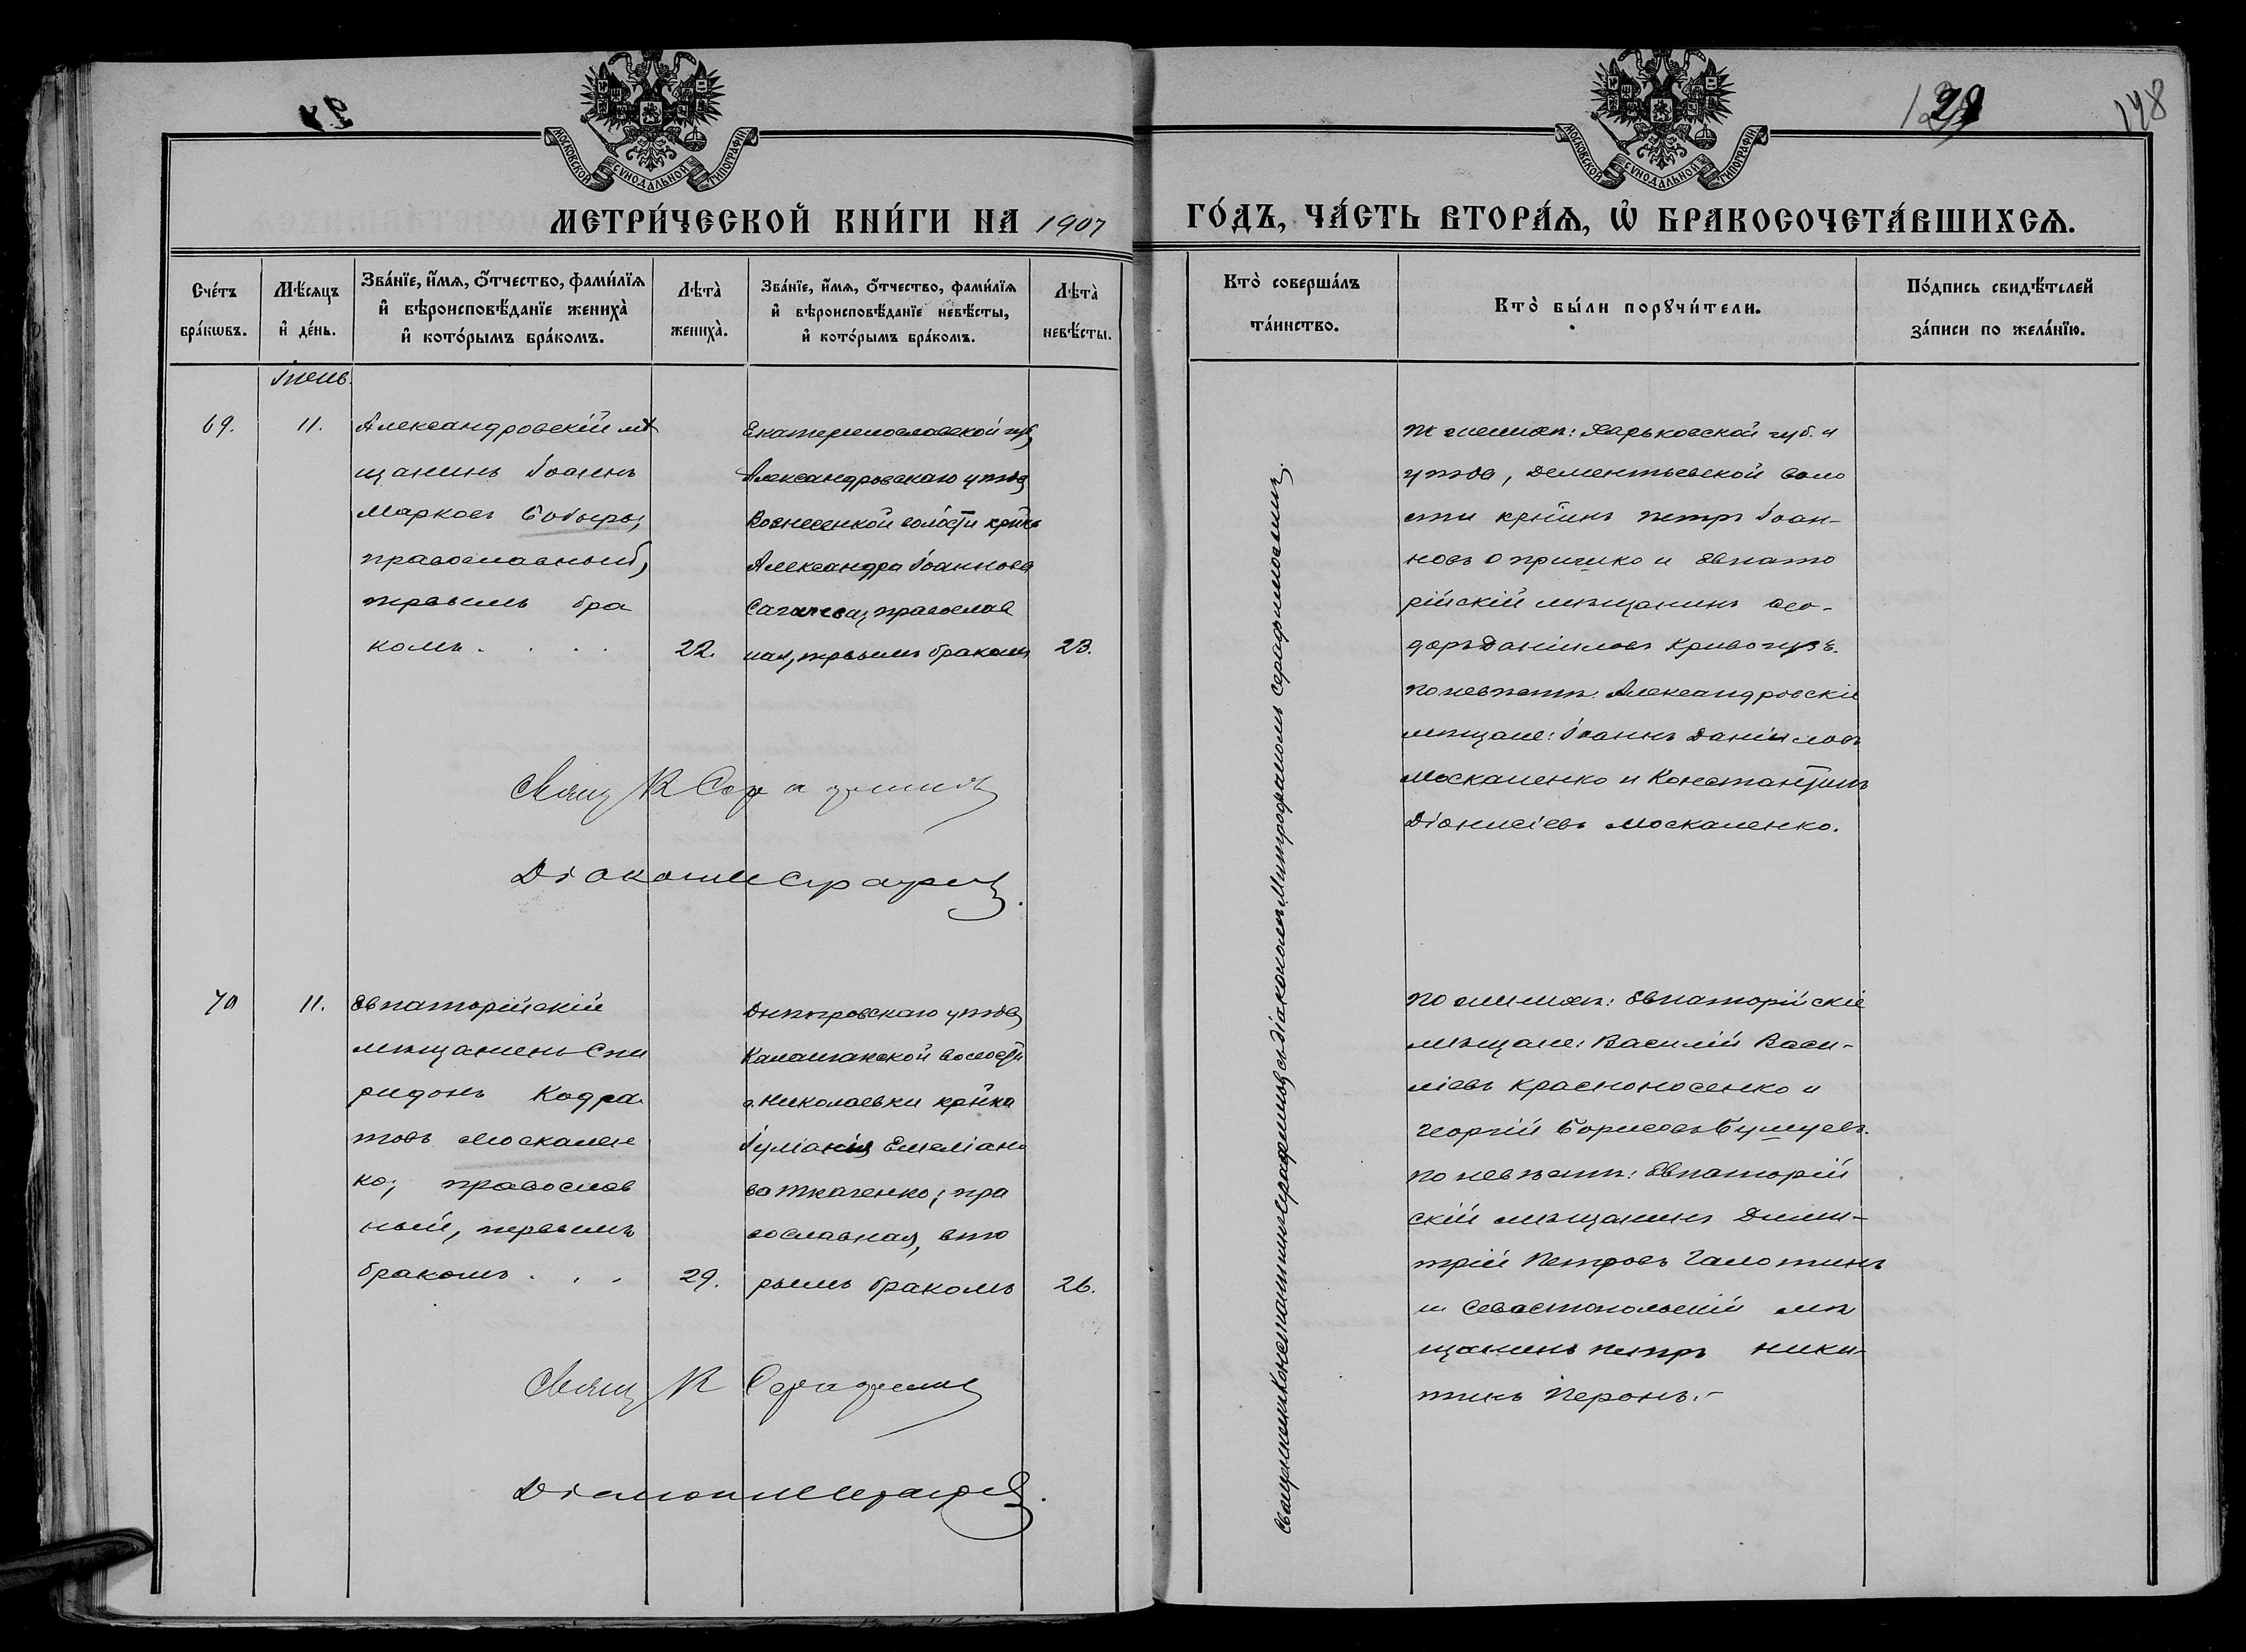 148
МОСКОВСКОЙ СУНОДАЛЬНОЙ ТИПОГРАФІИ
МОСКОВСКОЙ СУНОДАЛЬНОЙ ТИПОГРАФІИ
МЕТРИ́ЧЕСКОЙ КНИ́ГИ НА 1907
ГО́ДЪ, ЧА́СТЬ ВТОРА́Я, Ѡ БРАКОСОЧЕТА́ВШИХСЯ.
Сче́тъ
бра́кѡвъ.
Мѣ́сяцъ
и҆ де́нь.
Зва́нїе, и҆́мя, ѻ҆́тчество, фами́лїя
и҆ вѣроисповѣ́данїе жениха̀
и҆ кото́рымъ бра́комъ.
Лѣта̀
жениха̀.
Зва́нїе, и҆́мя, ѻ҆́тчество, фами́лїя
и҆ вѣроисповѣ́данїе невѣ́сты,
и҆ кото́рымъ бра́комъ.
Лѣта̀
невѣ́сты.
Кто̀ соверша́лъ
та́инство.
Кто̀ бы́ли порꙋчи́тели.
По́дпись свидѣ́телей
за́писи по жела́нїю.
Іюнь.
69.
11.
Александровскій мѣ
щанинъ Іоаннъ
Марковъ
православный,
первымъ бра
комъ . . . .
22.
Екатеринославской губ,
Александровскаго уѣзда
Вознесенкой волости кр-нка
Александра Іоаннова
православ
ная, первымъ бракомъ
23.
Свящ К Серафимовъ
Діаконъ М Серафим
Священникъ Константинъ Серафимовъ съ діакономъ Митрофаномъ Серафимовымъ.
по женихѣ: Харьковской губ. и
уѣзда, Дементьевской воло
сти кр-нинъ Петръ Іоан-
новъ Опришко и Евпато
рійскій мѣщанинъ Ѳео-
доръ Даніиловъ Кривогузъ.
по невѣстѣ: Александровскіе
мѣщане: Іоаннъ Даніиловъ
Москаленко и Константинъ
Діонисіевъ Москаленко.
70
11.
Евпаторійскій
мѣщанинъ Спи
ридонъ Кодра
товъ Москален
ко; православ
ный, первымъ
бракомъ . . .
29.
Днѣпровскаго уѣзда
Каланчакской волости
с. Николаевки кр-нка
Іуліанія Емеліано
ва Ткаченко; пра
вославная, вто
рымъ бракомъ
26.
Свящ К Серафимов
Діаконъ М Серафим
по женихѣ: Евпаторійскіе
мѣщане: Василій Васи-
ліевъ Красноносенко и
Георгій Борисовъ Бушуевъ.
по невѣстѣ: Евпаторій
скій мѣщанинъ Дими-
трій Петровъ Галотинъ
и Севастопольскій мѣ
щанинъ Петръ Ники-
тинъ Перонъ.-